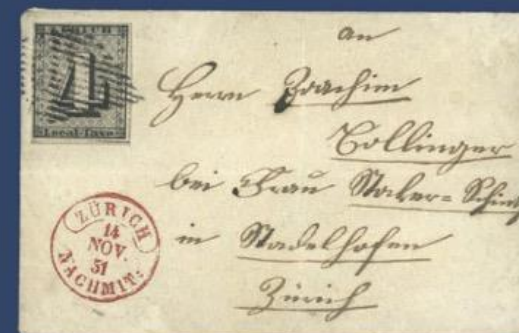 ZÜRICH
4
Local-Taxe
ZÜRICH
14
NOV.
51
NACHMIT:
an
Herrn Joachim
Bollinger
bei Frau Stoker-
in Stadelhofen
Zürich